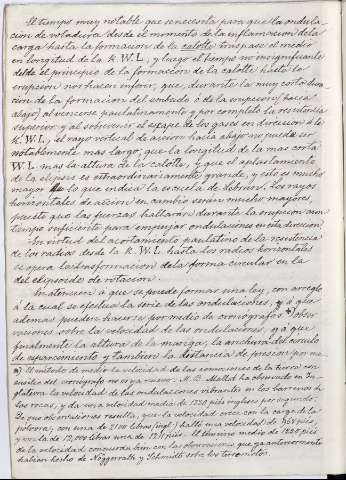 El tiempo muy notable que se necesita para que la ondula-
cion de voladura desde el momento de la inflamacion de la
carga hasta la formacion de la calotte traspase el medio
en longitud de la K. W. L., y luego el tiempo no insignificante
desde el principio de la formacion de la calotte hasta la
erupcion nos hacen inferir, que, durante la muy corta dura-
cion de la formacion del embudo ó de la erupcion hacia
abajo, al vencerse paulatinamente y por completo la resistencia
superior y al sobrevenir el escape de los gases en direccion á la
K. W. L., el rayo vertical de accion hacia abajo no puede ser
notablemente mas largo, que la longitud de la mas corta
W. L. mas la altura de la calotte, y que el aplastamiento
de la elipse es extraordinariamente grande, y esto es mucho
mayor de lo que indica la escuela de Hebrún, los rayos
horizontales de accion en cambio serán mucho mayores,
puesto que las fuerzas hallarán durante la erupcion aun
tiempo suficiente para empujar ondulaciones en esta direccion.
En virtud del acortamiento paulatino de la resistencia
de los radios desde la K. W. L. hasta los radios horizontales
se opera la transformacion de la forma circular en la
del elipsoide de rotacion.
En atencion á que se puede formar una ley, con arreglo
á la cual se efectua la serie de las ondulaciones, y á que
ademas pueden hacerse por medio de cronografos *) obser-
vaciones sobre la velocidad de las ondulaciones, y á que
finalmente la altura de la marga, la anchura del circulo
de esparcimiento y tambien la distancia de presion por me-
*) El método de medir la velocidad de las conmociones de la tierra con
auxilio del cronografo no es ya nuevo. M. R. Mallet ha observado en In-
glaterra la velocidad de las ondulaciones vibrantes en los barrenos de
las rocas, y da una velocidad media de 1220 pies ingleses por segundo.
De sus observaciones resulta, que la velocidad crece con la carga de la
polvora; con una de 2100 libras (ingl.) halló una velocidad de 967 pies,
y en la de 12,000 libras una de 1211 pies. El término medio de 1220 pies
de la velocidad concuerda bien con las observaciones que ya anteriormente
habian hecho de Nöggerath y Schmidt sobre los terremotos.